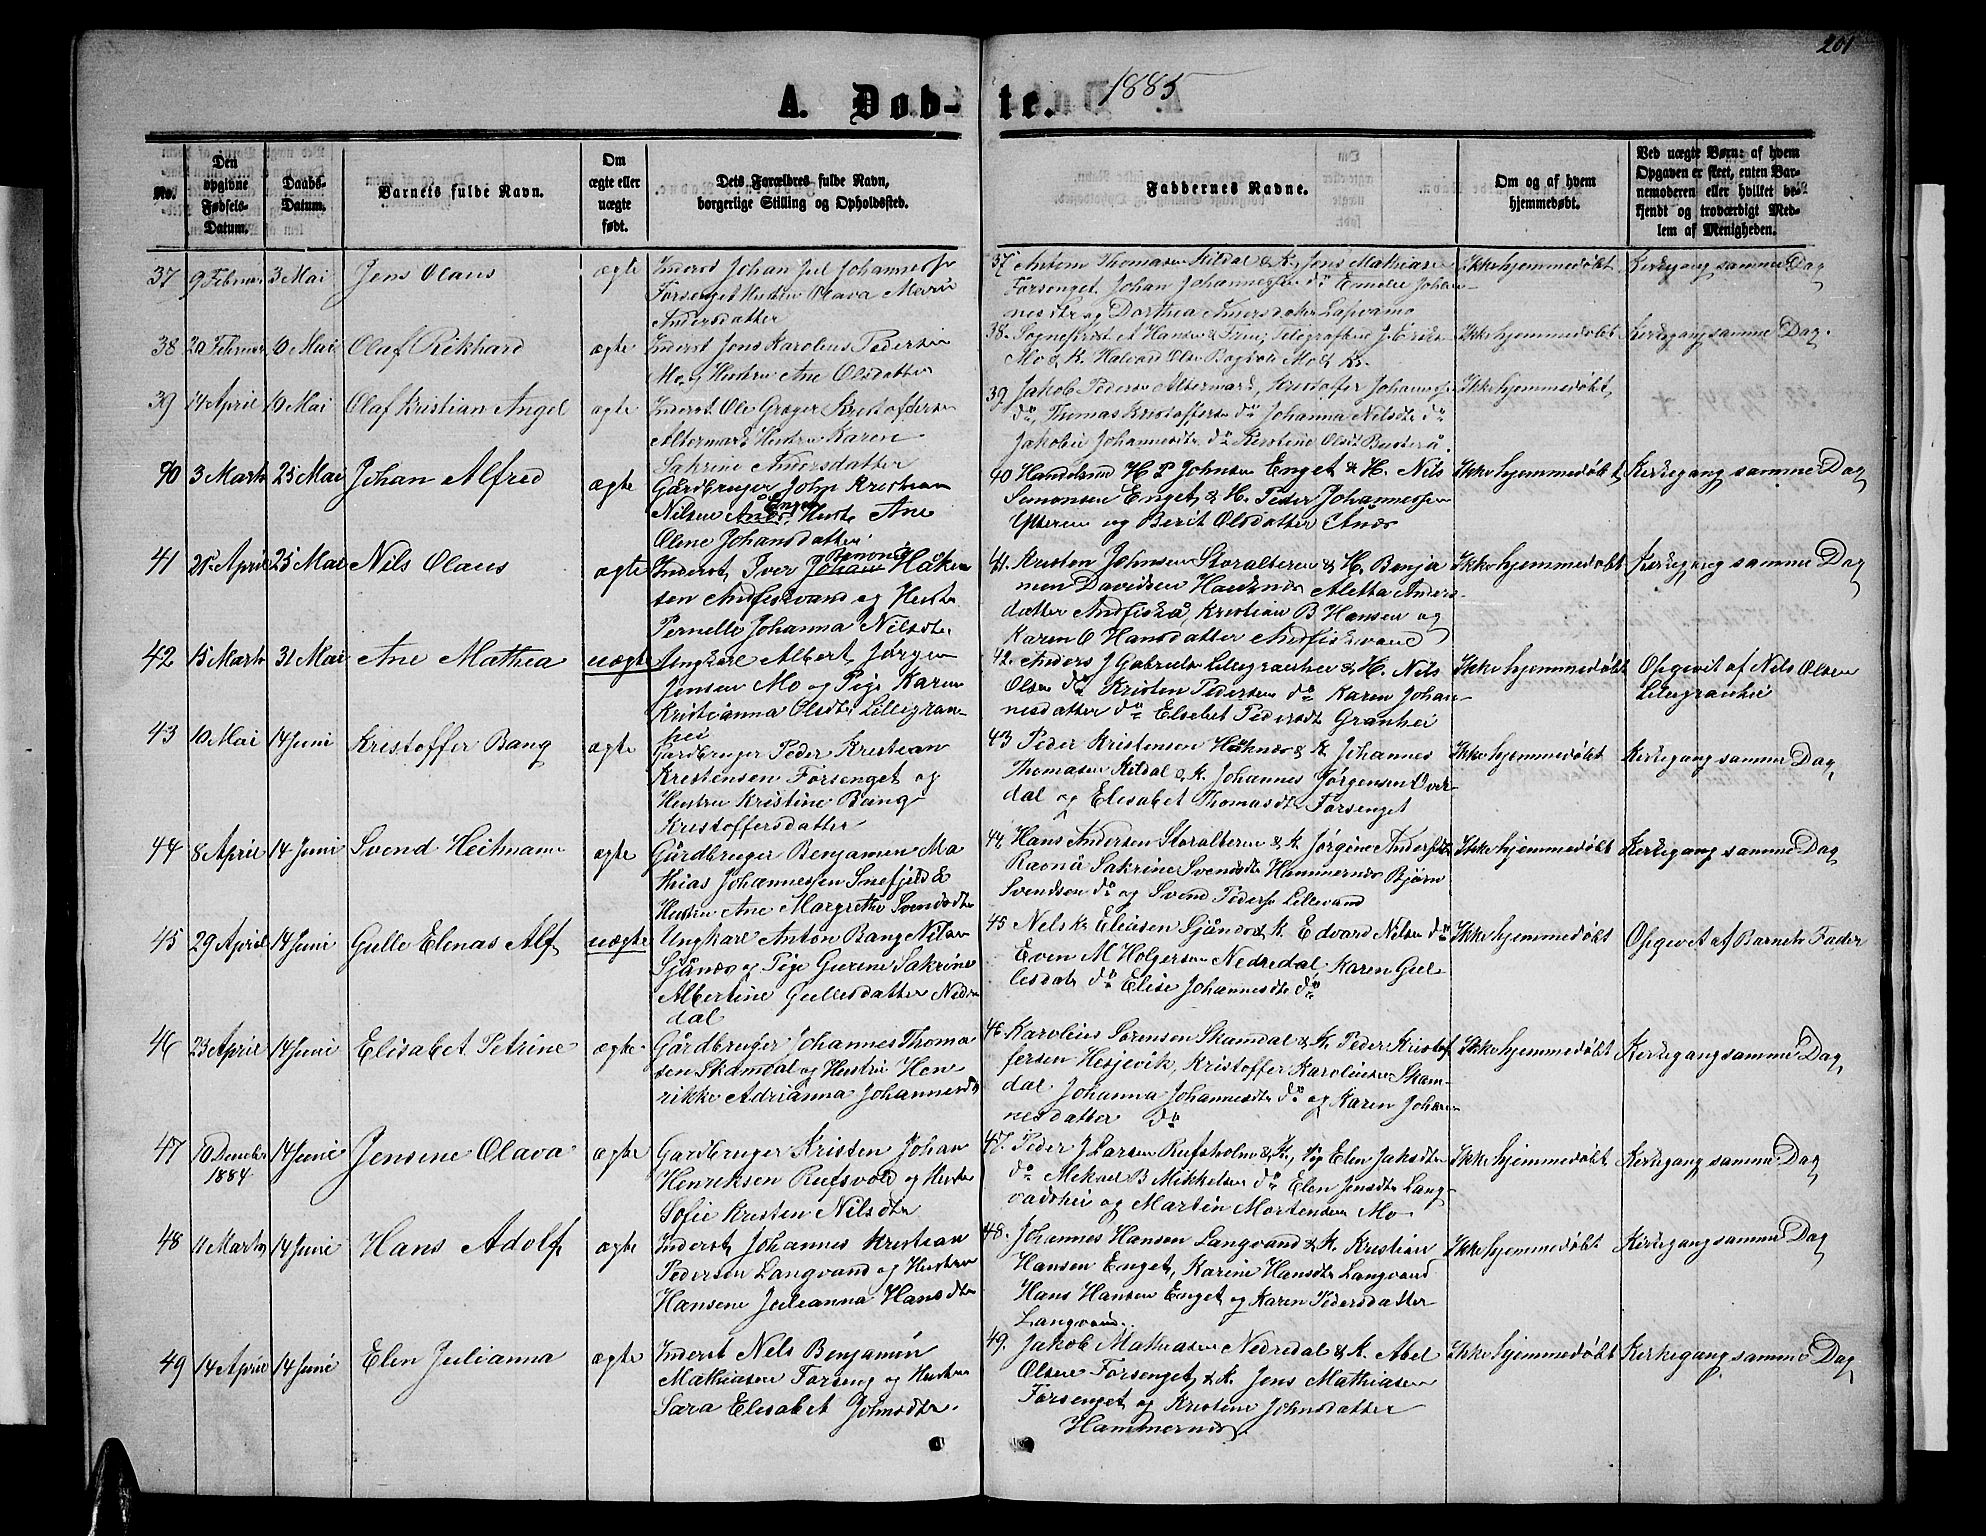 201
A. Døb-te. 1885
No.
Den opgivne Fødsels-Datum.
Daabs-Datum.
Barnets fulde Navn.
Om ægte eller uægte født.
Dets Forældres fulde Navn, borgerlige Stilling og Opholdssted.
Faddernes Navne.
Om og af hvem hjemmedøbt.
Ved uægte Børn: af hvem Opgaven er skeet, enten Barnemoderen eller hvilket bekjendt og troværdigt Medlem af Menigheden.
37 9 Februar 3 Mai Jens Olaus ægte Inderst Johan Jul
Forsenget Hustru Olava Marie
Andersdatter
37 Anton Thomasen Kildal & K. Jens Mathiasen
Forsenget, Johan
og Dorthea
Ikke hjemmedøbt Kirkegang samme Dag
38 20 Februar 10 Mai Olaf Rikhard ægte Inderst Jens Karolius Pedersen
Mo og Hustru Ane Olsdatter
38. Hansen & Frue,
Mo & K. Halvard Olsen
Ikke hjemmedøbt Kirkegang samme Dag.
39 14 April 10 Mai Olaf Kristian Angel ægte Inderst Ole Greger Kristoffersen
Altermark Hustru Karen
Sakrine Andersdatter
39 Jakob Pedersen Altermark, Kristofer
do, Thomas Kristoffersen do Johanna Nilsdtr do
Ikke hjemmedøbt,
40 3 Marts 25 Mai Johan Alfred ægte Gårdbruger John Kristian
Nilsen Enget Hustr Ane
Oline Johansdatter
40 Handelsmd H P Johnsen Enget & H. Nils
Simonsen Enget, & H. Peder Johannessen
Ytteren og Berit Olsdatter Anæs
Ikke hjemmedøbt, Kirkegang samme Dag
41 21 April 25 Mai Nils Olaus ægte Inderst, Iver Johan Håkon
sen Andfiskvand og Hustr
Pernelle Johanna Nilsdtr
41. Kristen Johnsen Storalteren & H. Benja
men Davidsen Hauknæs Aletta Anders
datter Andfiskå, Kristian B Hansen og
Karen O Hansdatter Andfiskvand
Ikke hjemmedøbt Kirkegang samme Dag
42 15 Marts 31 Mai Ane Mathea uægte Ungkarl Albert Jørgen
Jensen Mo og Pige Karen
Kristianna Olsdtr Lillegran-
hei
42. Anders J Gabrielsen Lillegranhei & H. Nils
Olsen do Kristen Pedersen do Karen Johan-
nesdatter do Elsebet Pedersdt Granhei
Ikke hjemmedøbt Opgevit af Nils Olsen
Lillegranhei
43 10 Mai 14 Juni Kristoffer Bang ægte Gardbruger Peder Kristian
Kristensen Forsenget og
Hustru Kristine Bang
Kristoffersdatter
43 Peder Kristensen Håknæs & K. Johannes
Thomasen Kildal & K. Johannes Jørgensen Over-
dal og Elisabet Thomasdtr Forsenget
Ikke hjemmedøbt Kirkegang samme Dag,
44 8 April 14 Juni Svend Heitmann ægte Gårdbruger Benjamin Ma
thias Johannessen Snefjeld &
Hustru Ane Margrethe Svendsdtr
44, Hans Andersen Storalteren & K. Jørgine Andersdtr
Ravnå Sakrine Svendsdtr Hammernæs Bjørn
Svendsen do og Svend Peders. Lillevand
Ikke hjemmedøbt Kirkegang samme Dag
45 29 April 14 Juni Gulle Elenas Alf uægte Ungkarl Anton Bang Nilsen
Sjånæs og Pige Gurine Sakrine
Albertine Gullesdatter Nedre
dal
45 Nels Eliasen Sjånæs & K. Edvard Nilsen do
Even M Holgersen Nedredal, Karen Gul
lesdatr do Elise Johannesdtr do
Ikke hjemmedøbt Opgevet af Barnets Fader
46 23 April 14 Juni Elisabet Petrine ægte Gårdbruger Johannes Thoma
sen Skamdal og Hustru Hen
rikke Adrianna Johannesdtr
46 Karolius Sørensen Skamdal & K. Peder Kristof
fersen Hesjevik, Kristoffer Karoliusen Skam-
dal Johanna Johannesdtr do og Karen Johan
nesdatter do
Ikke hjemmedøbt Kirkegang samme Dag,
47 10 Decmbr 1884 14 Juni Jensine Olava ægte Gardbruger Kristen Johan
Henriksen Rufsvold og Hustru
Sofie Kristen Nilsdtr
47. Peder J Larsen Rufsholm & K, Pig Elen Jaksdtr
do Mekael B Mikkelsen do Elen Jensdtr Lang
vadshei og Martin Mortensen Mo
Ikke hjemmedøbt, Kirkegang samme Dag
48 11 Marts 14 Juni Hans Adolf, ægte Inderst, Johannes Kristian
Pedersen Langvand og Hustru
Hansine Julianna Hansdtr
48. Johannes Hansen Langvand & K. Kristian
Hansen Enget, Karine Hansdtr Langvand
Hans Hansen Enget og Karen Pedersdatter
Langvand.
Ikke hjemmedøbt Kirkegang samme Dag
49 14 April 14 Juni Elen Julianna ægte Inderst Nels Benjamin
Mathiasen Forseng og Hustru
Sara Elisabet Johnsdtr.
49. Jakob Mathiasen Nedredal & K. Abel
Olsen Forsenget, & K. Jens Mathiasen
Forsenget og Kristine Johnsdatter
Hammernes
Ikke hjemmedøbt Kirkegang samme Dag,